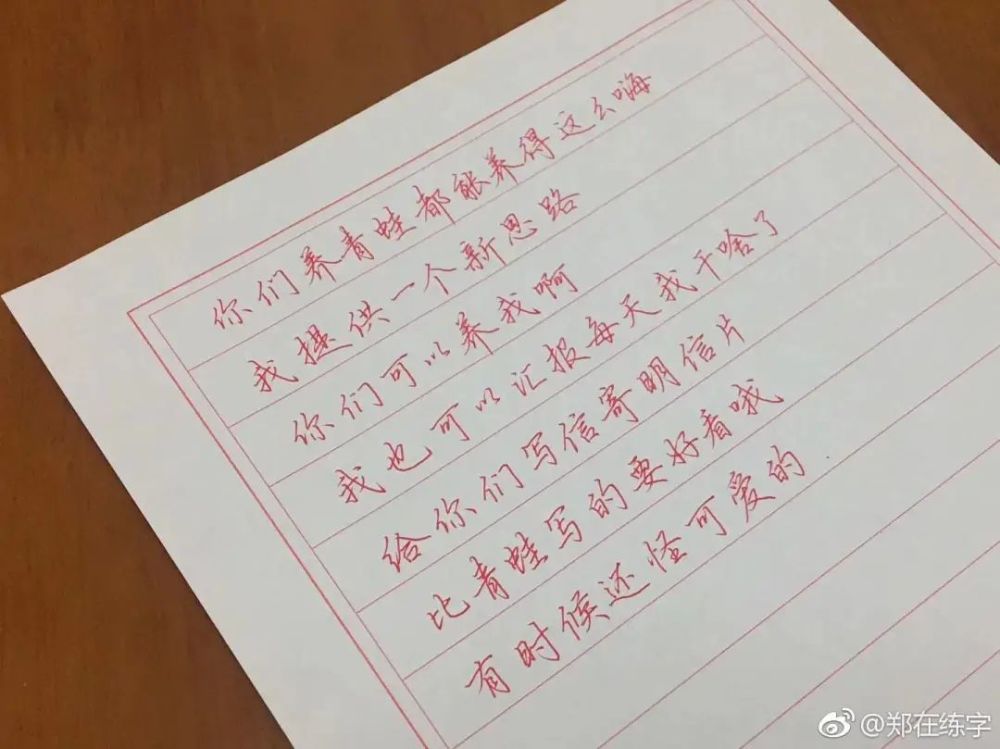 你们养青蛙都能养得这么嗨
我提供一个新思路
你们可以养我啊
我也可以汇报每天我干啥了
给你们写信寄明信片
比青蛙写的要好看哦
有时候还怪可爱的
@郑在练字